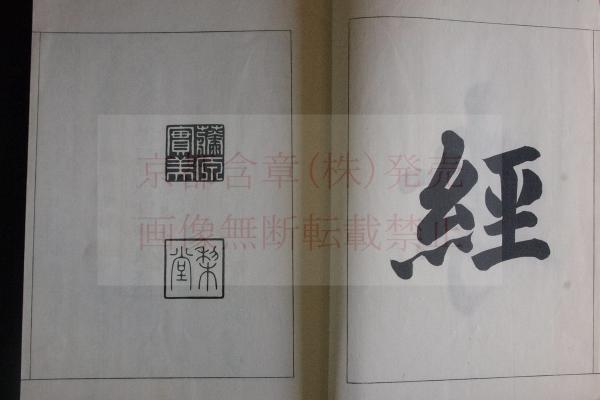 經
藤原
實美
梨堂
京都含章(株)発売
画像無断転載禁止